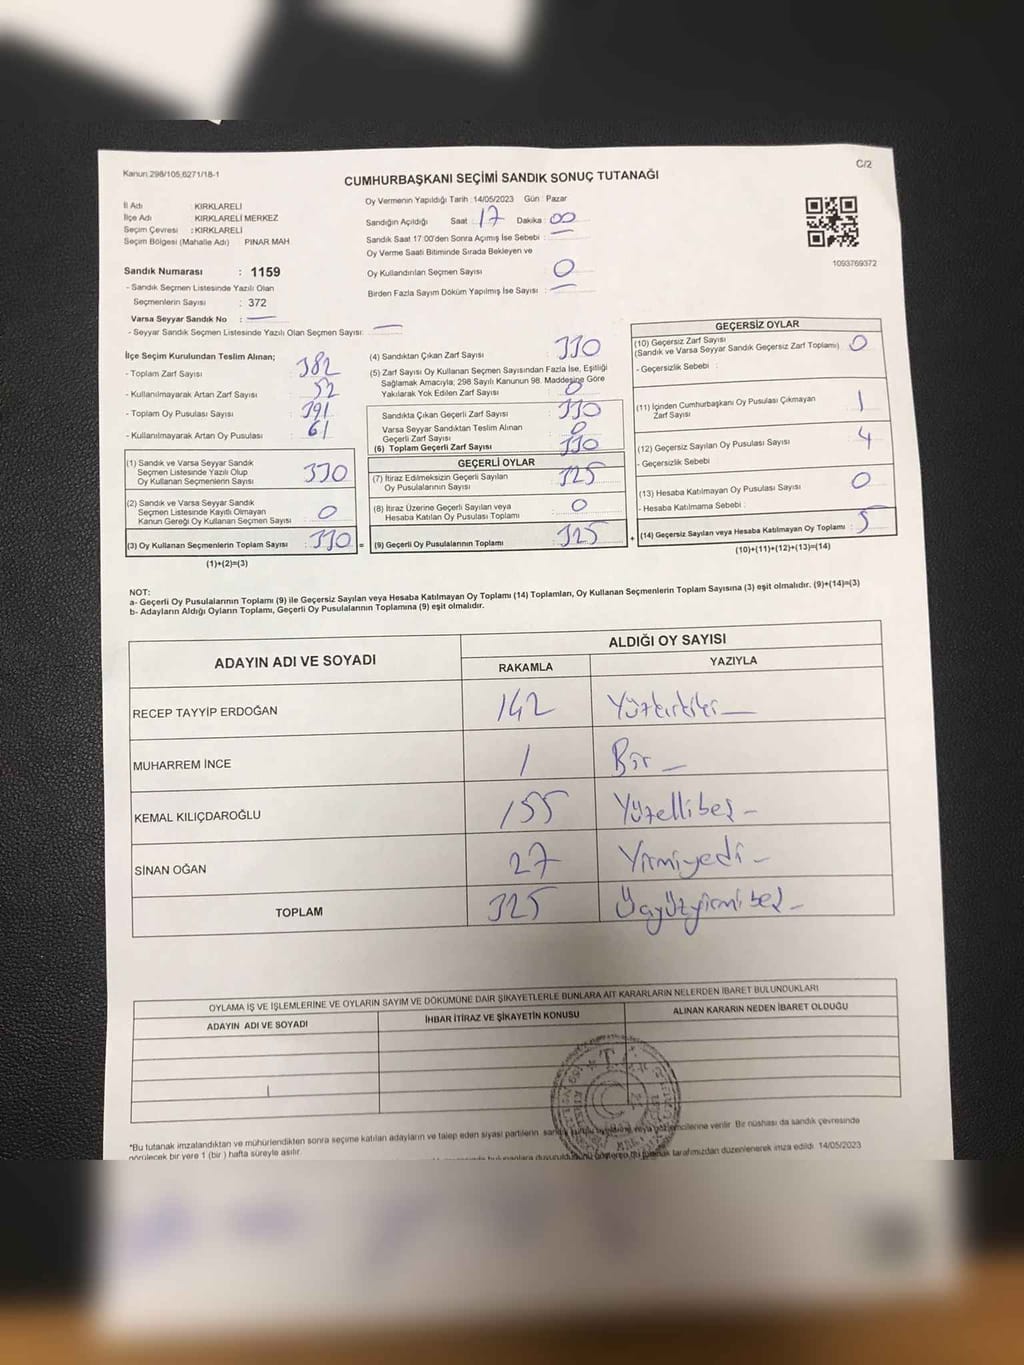 Kanun 298/105,6271/18-1
C/2
CUMHURBAŞKANI SEÇİMİ SANDIK SONUÇ TUTANAĞI
İl Adı : KIRKLARELİ
İlçe Adı : KIRKLARELİ MERKEZ
Seçim Çevresi : KIRKLARELİ
Seçim Bölgesi (Mahalle Adı) PINAR MAH
Sandık Numarası : 1159
- Sandık Seçmen Listesinde Yazılı Olan
Seçmenlerin Sayısı : 372
Varsa Seyyar Sandık No :
- Seyyar Sandık Seçmen Listesinde Yazılı Olan Seçmen Sayısı:
Oy Vermenin Yapıldığı Tarih :14/05/2023 Gün : Pazar
Sandığın Açıldığı Saat : 17 Dakika : 00
Sandık Saat 17:00'den Sonra Açımış İse Sebebi :
Oy Verme Saati Bitiminde Sırada Bekleyen ve
Oy Kullandırılan Seçmen Sayısı : 0
Birden Fazla Sayım Döküm Yapılmış İse Sayısı :
1093769372
İlçe Seçim Kurulundan Teslim Alınan;
- Toplam Zarf Sayısı : 382
- Kullanılmayarak Artan Zarf Sayısı : 52
- Toplam Oy Pusulası Sayısı : 391
- Kullanılmayarak Artan Oy Pusulası : 61
(1) Sandık ve Varsa Seyyar Sandık
Seçmen Listesinde Yazılı Olup
Oy Kullanan Seçmenlerin Sayısı : 330
(2) Sandık ve Varsa Seyyar Sandık
Seçmen Listesinde Kayıtlı Olmayan
Kanun Gereği Oy Kullanan Seçmen Sayısı : 0
(3) Oy Kullanan Seçmenlerin Toplam Sayısı : 330 =
(1)+(2)=(3)
(4) Sandıktan Çıkan Zarf Sayısı : 330
(5) Zarf Sayısı Oy Kullanan Seçmen Sayısından Fazla İse, Eşitliği
Sağlamak Amacıyla; 298 Sayılı Kanunun 98. Maddesine Göre
Yakılarak Yok Edilen Zarf Sayısı : 0
Sandıkta Çıkan Geçerli Zarf Sayısı : 330
Varsa Seyyar Sandıktan Teslim Alınan
Geçerli Zarf Sayısı : 0
(6) Toplam Geçerli Zarf Sayısı : 330
GEÇERLİ OYLAR
(7) İtiraz Edilmeksizin Geçerli Sayılan
Oy Pusulalarının Sayısı : 325
(8) İtiraz Üzerine Geçerli Sayılan veya
Hesaba Katılan Oy Pusulası Toplamı : 0
(9) Geçerli Oy Pusulalarının Toplamı : 325 +
GEÇERSİZ OYLAR
(10) Geçersiz Zarf Sayısı
(Sandık ve Varsa Seyyar Sandık Geçersiz Zarf Toplamı) : 0
- Geçersizlik Sebebi :
(11) İçinden Cumhurbaşkanı Oy Pusulası Çıkmayan
Zarf Sayısı : 1
(12) Geçersiz Sayılan Oy Pusulası Sayısı : 4
- Geçersizlik Sebebi
(13) Hesaba Katılmayan Oy Pusulası Sayısı : 0
- Hesaba Katılmama Sebebi :
(14) Geçersiz Sayılan veya Hesaba Katılmayan Oy Toplamı : 5
(10)+(11)+(12)+(13)=(14)
NOT:
a- Geçerli Oy Pusulalarının Toplamı (9) ile Geçersiz Sayılan veya Hesaba Katılmayan Oy Toplamı (14) Toplamları, Oy Kullanan Seçmenlerin Toplam Sayısına (3) eşit olmalıdır. (9)+(14)=(3)
b- Adayların Aldığı Oyların Toplamı, Geçerli Oy Pusulalarının Toplamına (9) eşit olmalıdır.
ADAYIN ADI VE SOYADI
ALDIĞI OY SAYISI
RAKAMLA YAZIYLA
RECEP TAYYİP ERDOĞAN 142 Yüzkırkiki
MUHARREM İNCE 1 Bir
KEMAL KILIÇDAROĞLU 155 Yüzellibeş
SİNAN OĞAN 27 Yirmiyedi
TOPLAM 325 Üçyüzyirmibeş
OYLAMA İŞ VE İŞLEMLERİNE VE OYLARIN SAYIM VE DÖKÜMÜNE DAİR ŞİKAYETLERLE BUNLARA AİT KARARLARIN NELERDEN İBARET BULUNDUKLARI
ADAYIN ADI VE SOYADI İHBAR İTİRAZ VE ŞİKAYETİN KONUSU ALINAN KARARIN NEDEN İBARET OLDUĞU
*Bu tutanak imzalandıktan ve mühürlendikten sonra seçime katılan adayların ve talep eden siyasi partilerin sandık kurulu üyelerine veya gözlemcilerine verilir. Bir nüshası da sandık çevresinde
görülecek bir yere 1 (bir ) hafta süreyle asılır.
tarafımızdan düzenlenerek imza edildi. 14/05/2023